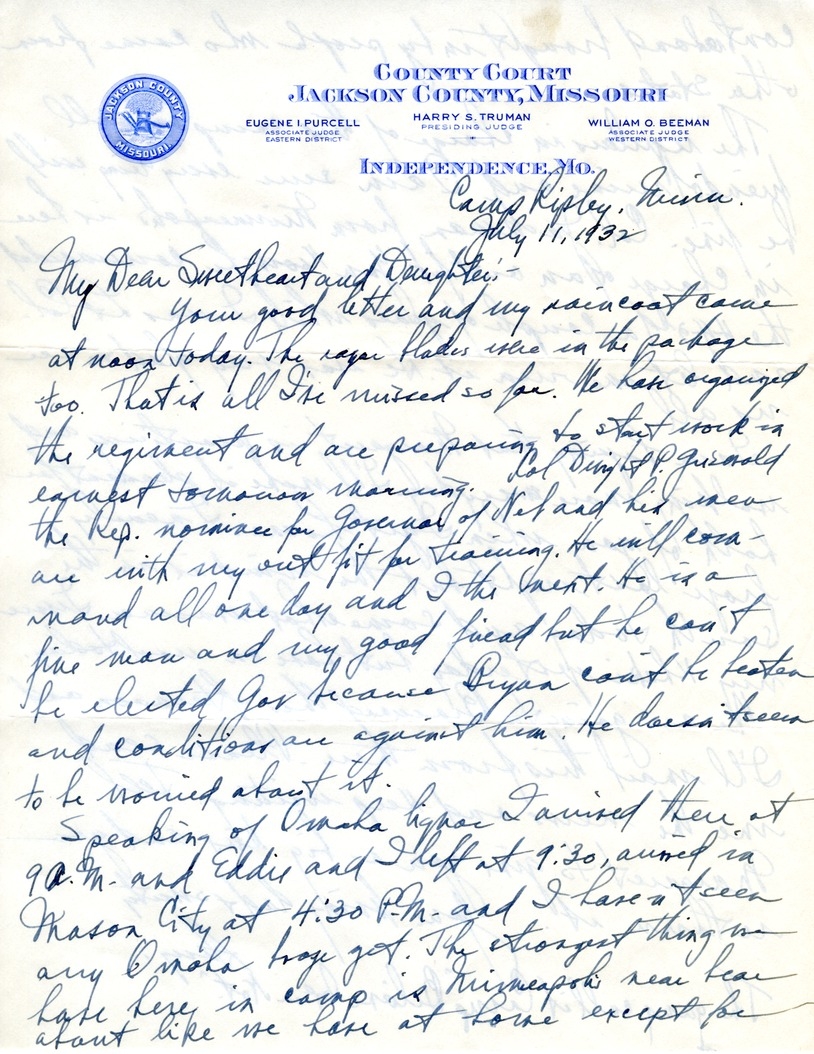 COUNTY COURT
JACKSON COUNTY, MISSOURI
JACKSON COUNTY
MISSOURI
EUGENE I. PURCELL
ASSOCIATE JUDGE
EASTERN DISTRICT
HARRY S. TRUMAN
PRESIDING JUDGE
WILLIAM O. BEEMAN
ASSOCIATE JUDGE
WESTERN DISTRICT
INDEPENDENCE, MO.
Camp Ripley, Minn.
July 11, 1932
My Dear Sweetheart and Daughter:-
Your good letter and my raincoat came
at noon today. The razor blades were in the package
too. That is all I've missed so far. We have organized
the regiment and are preparing to start work in
earnest tomorrow morning. Col Dwight P. Griswold
the Rep. nominee for Governor of Neb and his men
are with my outfit for training. He will com-
mand all one day and I the next. He is a
fine man and my good friend but he can't
be elected Gov because Bryan can't be beaten
and conditions are against him. He doesn't seem
to be worried about it.
Speaking of Omaha liquor I arrived there at
9 A.M. and Eddie and I left at 9:30, arrived in
Mason City at 4:30 P.M. and I haven't seen
any Omaha booze yet. The strongest thing we
have here in camp is Minneapolis near bear
about like we have at home except for